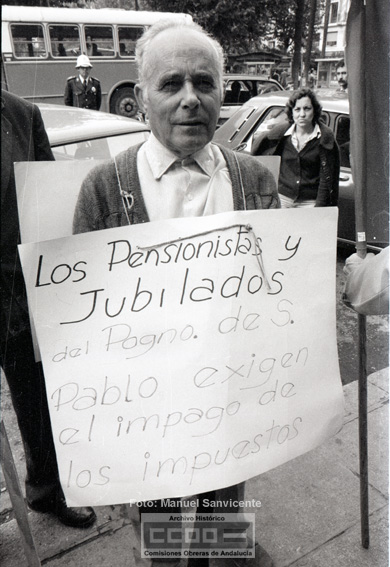 Los Pensionistas y
Jubilados
del Pogno. de S.
Pablo exigen
el impago de
los impuestos
Foto: Manuel Sanvicente
Archivo Histórico
CCOO
Comisiones Obreras de Andalucía